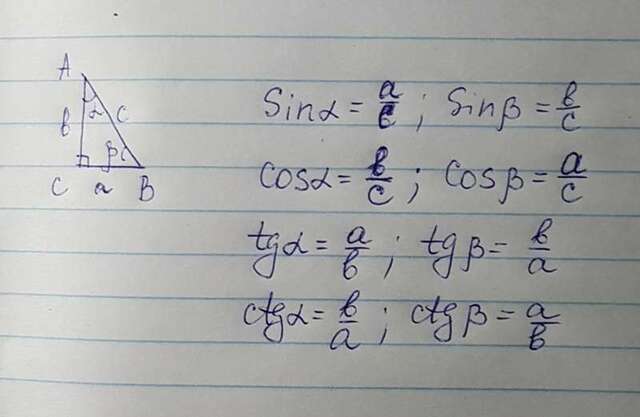 A
b α c
β
C a B
Sinα = a/c ; Sinβ = b/c
Cosα = b/c ; Cosβ = a/c
tgα = a/b ; tgβ = b/a
ctgα = b/a ; ctgβ = a/b